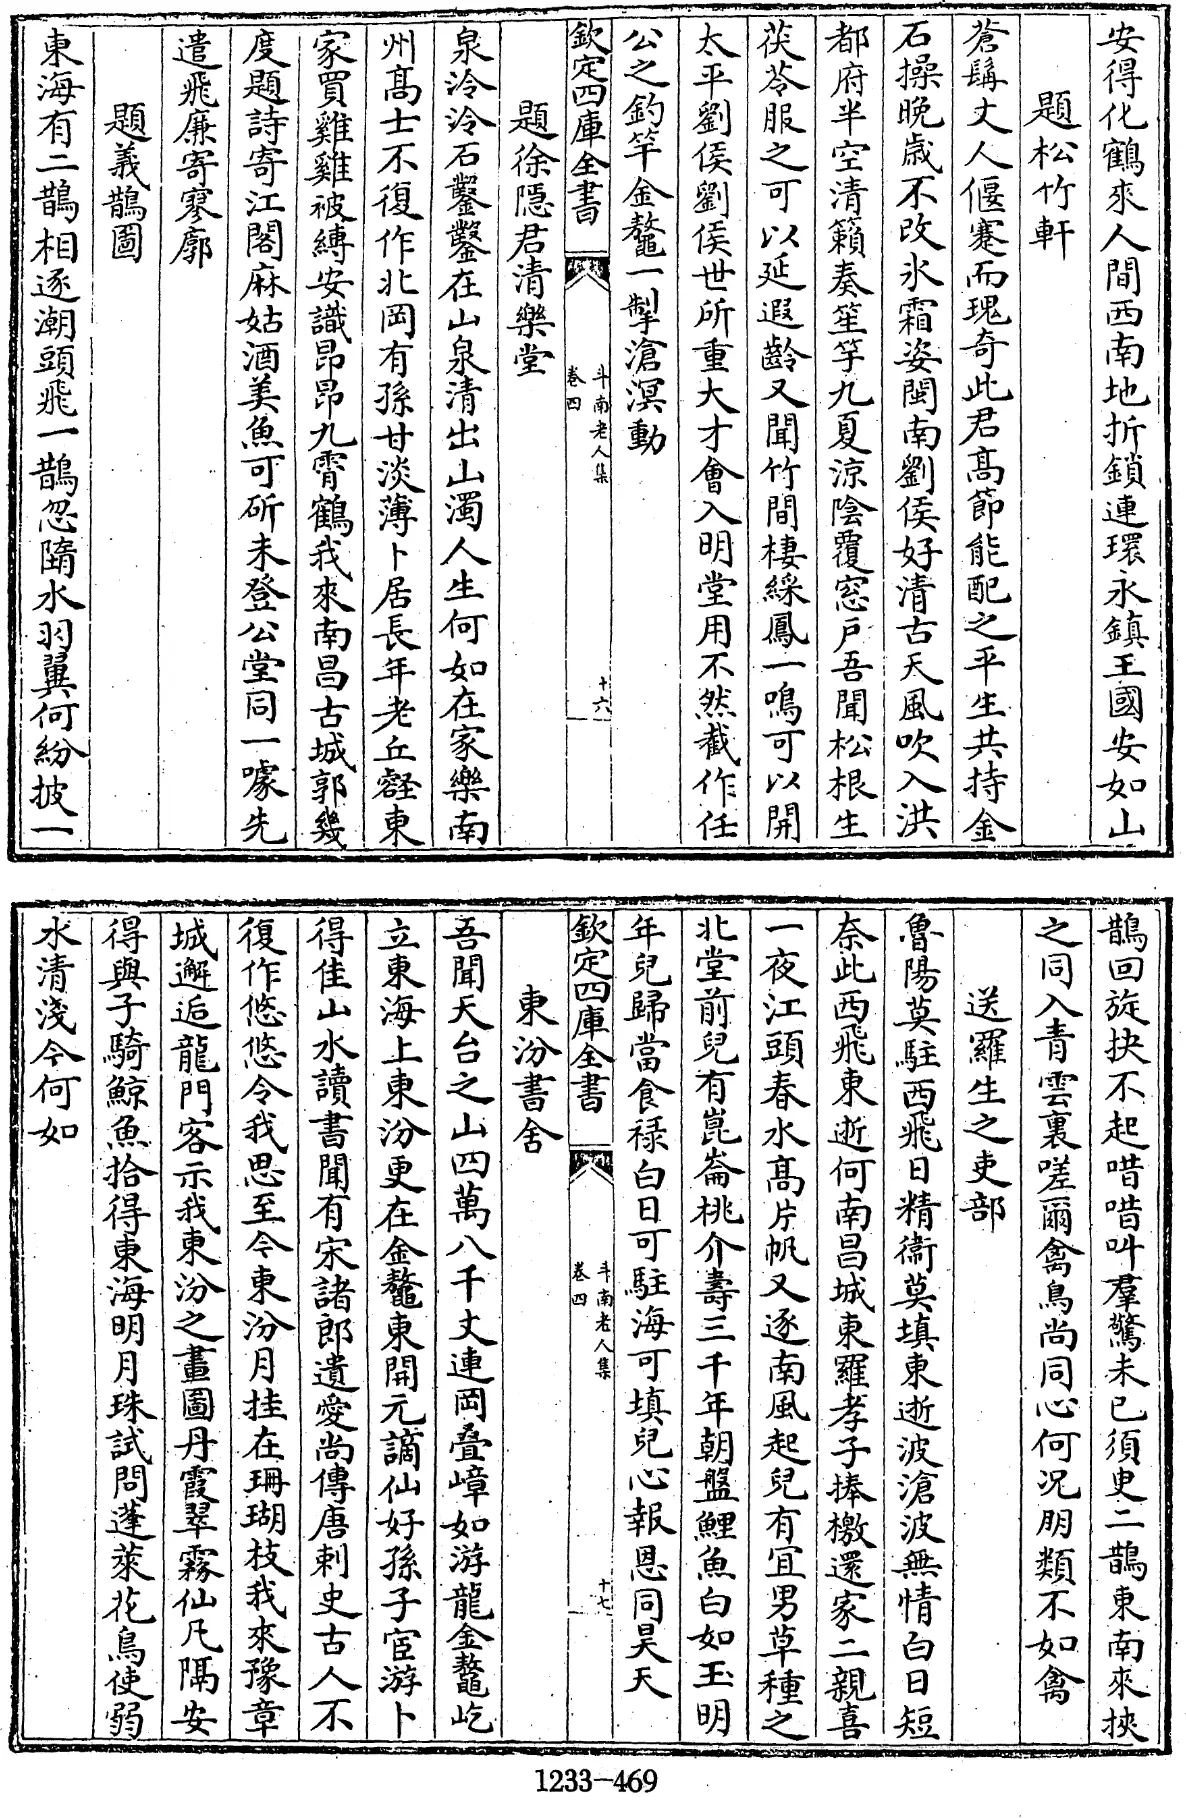 安得化鶴來人間西南地折鎖連環永鎮王國安如山
題松竹軒
蒼髯丈人偃蹇而瑰奇此君高節能配之平生共持金
石操晚歲不改氷霜姿閩南劉侯好清古天風吹入洪
都府半空清籟奏笙竽九夏涼陰覆窓戶吾聞松根生
茯苓服之可以延遐齡又聞竹間棲綵鳳一鳴可以開
太平劉侯劉侯世所重大才會入明堂用不然截作任
公之釣竿金鼇一掣滄溟動
欽定四庫全書
斗南老人集
卷四
十六
題徐隱君清樂堂
泉泠泠石鑿鑿在山泉清出山濁人生何如在家樂南
州高士不復作北岡有孫甘淡薄卜居長年老丘壑東
家買雞雞被縛安識昂昂九霄鶴我來南昌古城郭幾
度題詩寄江閣麻姑酒美魚可斫未登公堂同一噱先
遣飛廉寄寥廓
題義鵲圖
東海有二鵲相逐潮頭飛一鵲忽墮水羽翼何紛披一
鵲回旋抉不起唶唶叫羣驚未已須臾二鵲東南來挾
之同入青雲裏嗟爾禽鳥尚同心何況朋類不如禽
送羅生之吏部
魯陽莫駐西飛日精衞莫填東逝波滄波無情白日短
奈此西飛東逝何南昌城東羅孝子捧檄還家二親喜
一夜江頭春水高片帆又逐南風起兒有宜男草種之
北堂前兒有崑崙桃介壽三千年朝盤鯉魚白如玉明
年兒歸當食祿白日可駐海可填兒心報恩同昊天
欽定四庫全書
斗南老人集
卷四
十七
東汾書舍
吾聞天台之山四萬八千丈連岡疊嶂如游龍金鼇屹
立東海上東汾更在金鼇東開元謫仙好孫子宦游卜
得佳山水讀書聞有宋諸郎遺愛尚傳唐刺史古人不
復作悠悠令我思至今東汾月挂在珊瑚枝我來豫章
城邂逅龍門客示我東汾之畫圖丹霞翠霧仙凡隔安
得與子騎鯨魚拾得東海明月珠試問蓬萊花鳥使弱
水清淺今何如
1233-469